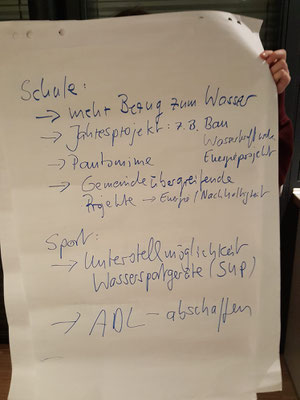 Schule:
→ mehr Bezug zum Wasser
→ Jahresprojekt: z.B. Bau
Wasserkraftwerke
→ Pantomime
Energieprojekt
→ Gemeindeübergreifende
Projekte → Energie / Nachhaltigkeit
Sport:
→ Unterstellmöglichkeit
Wassersportgeräte (SUP)
→ ADL - abschaffen